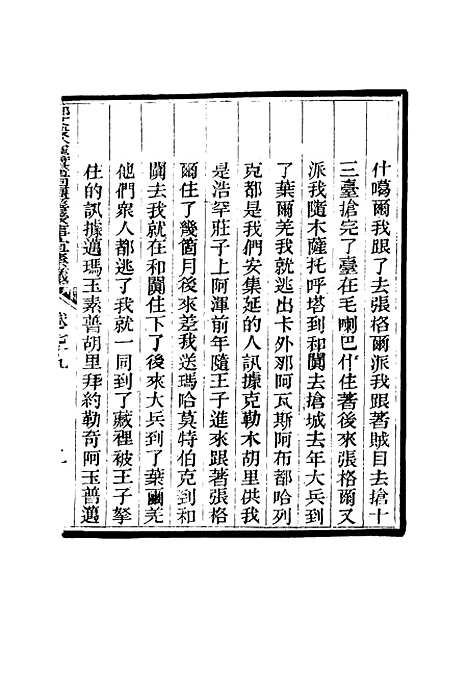 什噶爾我跟了去張格爾派我跟著賊目去搶十
三臺搶完了臺在毛喇巴什住著後來張格爾又
派我隨木薩托呼塔到和闐去搶城去年大兵到
了葉爾羌我就逃出卡外那阿瓦斯阿布都哈列
克都是我們安集延的人訊據克勒木胡里供我
是浩罕莊子上阿渾前年隨王子進來跟著張格
爾住了幾個月後來差我送瑪哈莫特伯克到和
闐去我就在和闐住下了後來大兵到了葉爾羌
他們衆人都逃了我就一同到了藏裡被王子拏
住的訊據邁瑪玉素普胡里拜約勒奇阿玉普邁